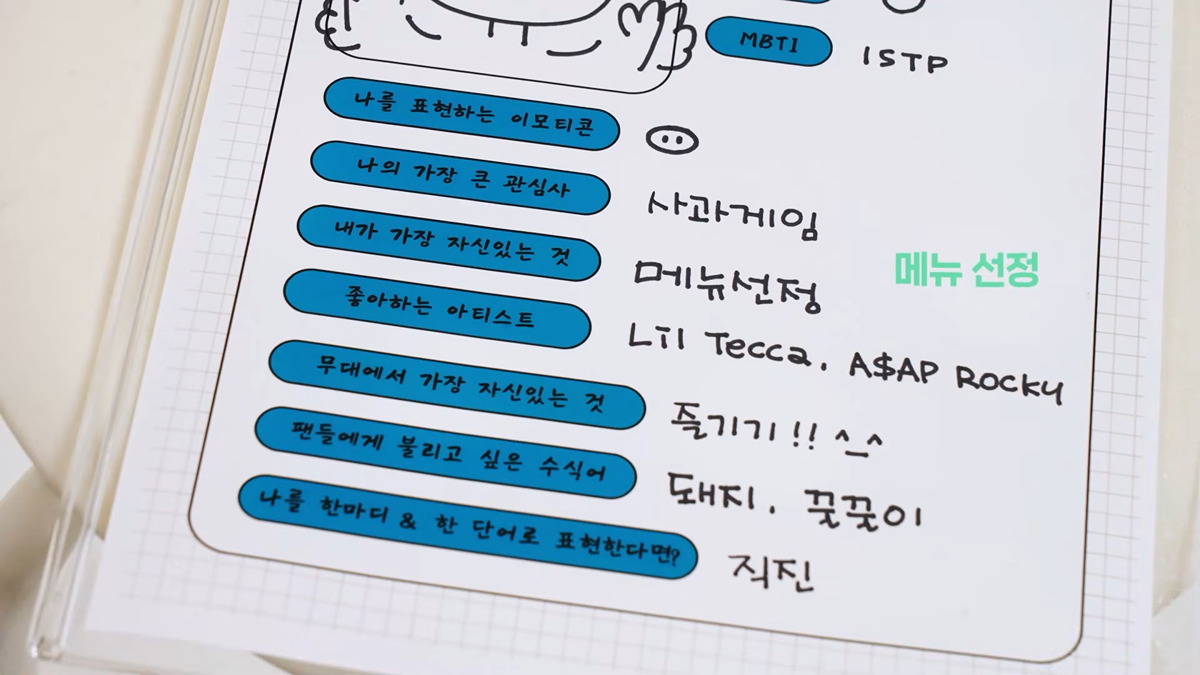 MBTI ISTP
나를 표현하는 이모티콘
나의 가장 큰 관심사 사과게임
내가 가장 자신있는 것 메뉴선정
메뉴 선정
좋아하는 아티스트 Lil Tecca, A$AP Rocky
무대에서 가장 자신있는 것 즐기기!! ^_^
팬들에게 불리고 싶은 수식어 돼지, 꿀꿀이
나를 한마디 & 한 단어로 표현한다면? 직진